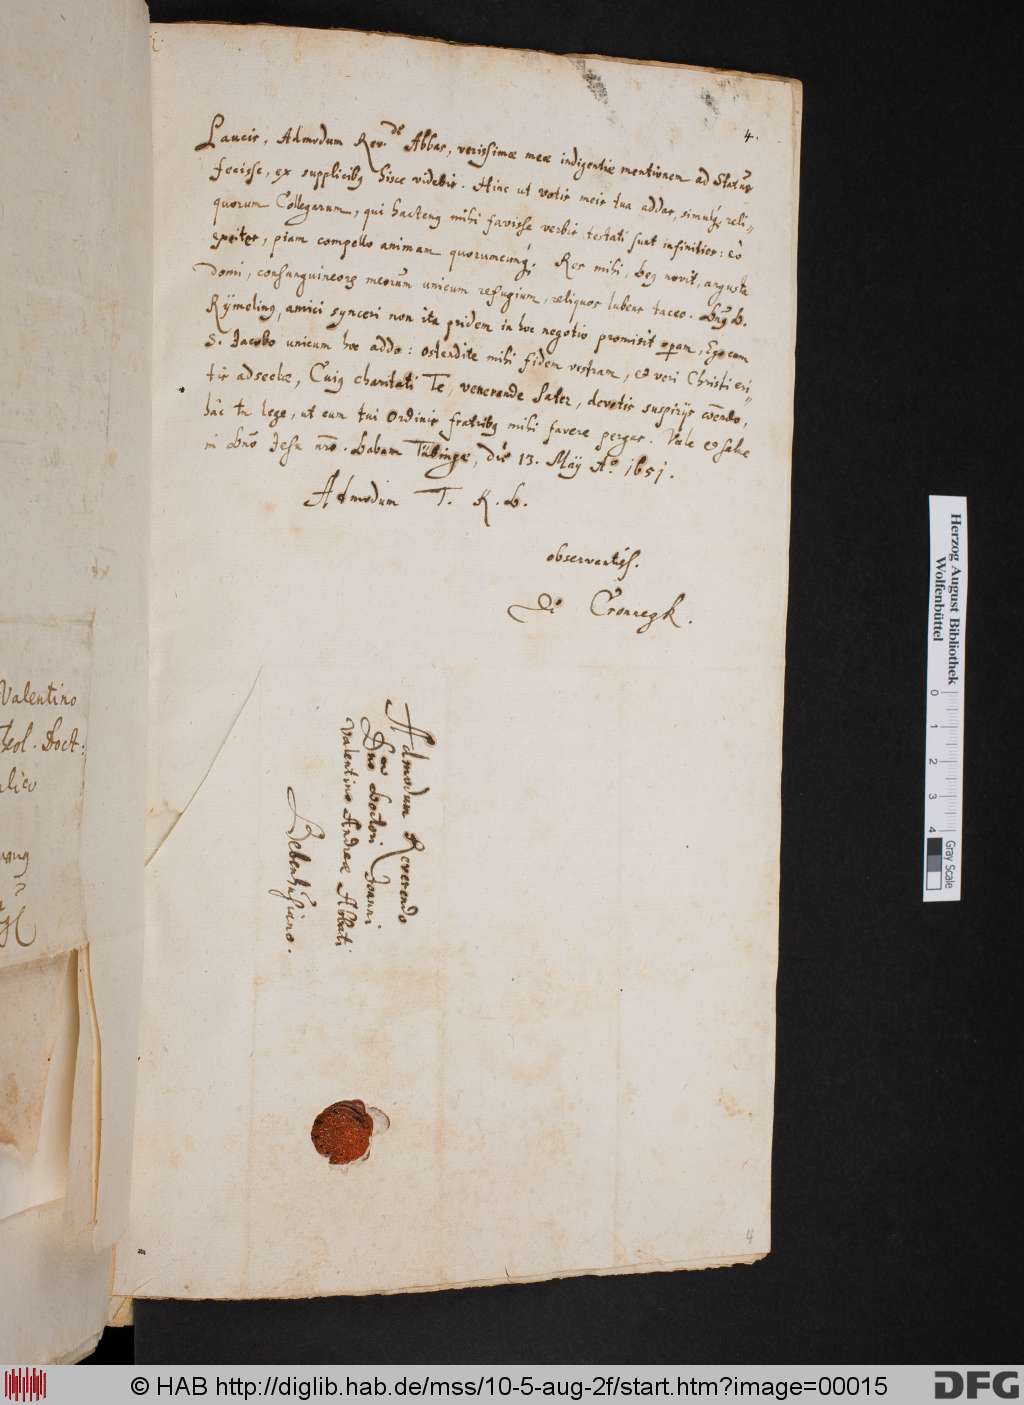 4.
Paucis, Admodum Rev.de Abbas, verissimæ meæ indigentiæ mentionem ad Statūs
fecisse, ex supplicibq hisce videbis. Hinc ut votis meis tua addas, simulq reli-
quorum Collegarum, qui hactenq mihi favisse verbis testati sunt infinities: eò
piam compello animam quorumcunq. Res mihi, Deq novit, angusta
domi, consanguineorq meorum unicum refugium, reliquos lubens taceo. Dnq D.
Rÿmelinq, amici synceri non ita pridem in hoc negotio promisit opam, Ego cum
S. Jacobo unicum hoc addo: ostendite mihi fidem vestram, et veri Christi eri-
tis adseclæ, Cuiq charitati Te, venerende Pater, devotis suspirijs
hâc tn lege, ut cum tui Ordinis fratribq mihi favere pergas. Vale et salve
in Dno Jesu nro. Dabam Tübingæ, die 13. Maÿ Aº. 1651.
Admodum T. R. D.
observantiss.
Cronnegk.
Admodum Reverendo
Dno Doctori Joanni
Valentino Andreæ Abbati
Bebenhusiano.
Valentino
Doct:
4
Herzog August Bibliothek
Wolfenbüttel
0 1 2 3 4
Gray Scale
© HAB http://diglib.hab.de/mss/10-5-aug-2f/start.htm?image=00015
DFG